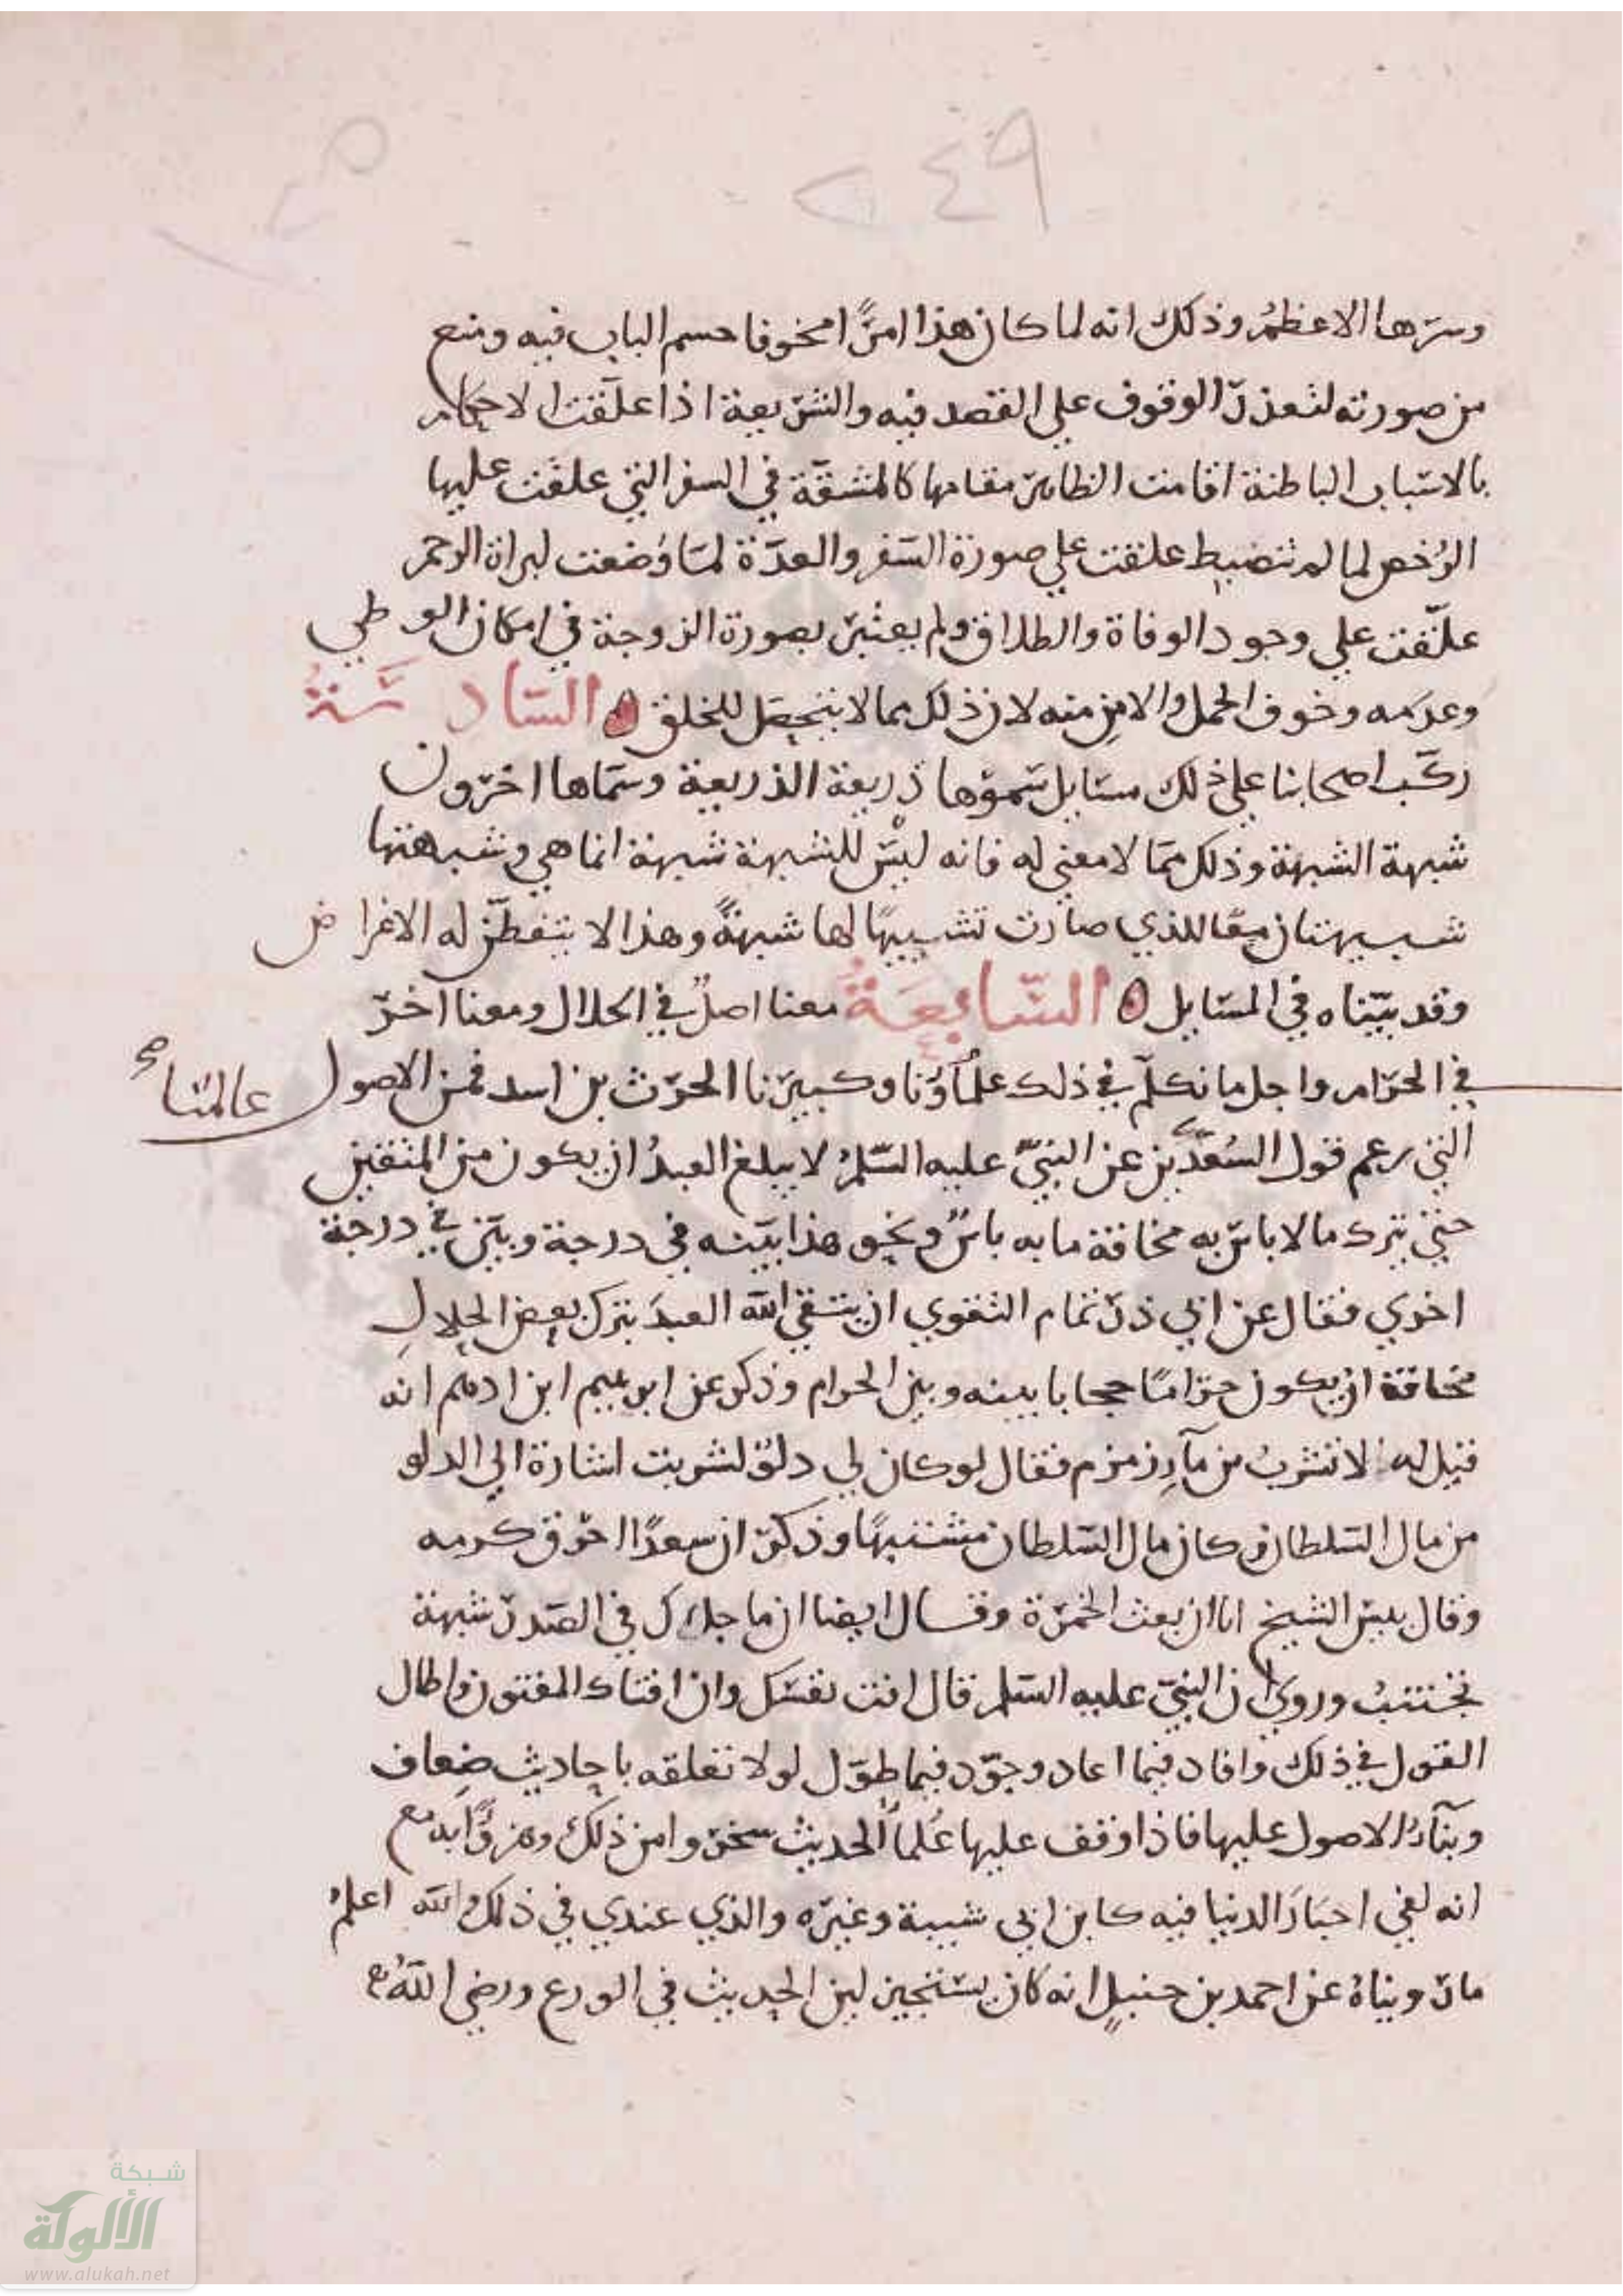 ٢٤٩
وسرها الاعظم وذلك انه لما كان هذا امرًا مخوفا حسم الباب فيه ومنع
من صورته لتعذر الوقوف على القصد فيه والشريعة اذا علقت الاحكام
بالاسباب الباطنة اقامت الظاهر مقامها كالمشقة في السفر التي علقت عليها
الرخص لما لم تنضبط علقت علي صورة السفر والعدة لما وضعت لبراة الرحم
علقت علي وجود الوفاة والطلاق ولم يعتبر بصورة الزوجة في امكان الوطي
وعدمه وخوف الحمل والامن منه لان ذلك مما لا يتحصل للخلق ه السادسة
ركب اصحابنا علي ذلك مسايل سموها ذريعة الذريعة وسماها اخرون
شبهة الشبهة وذلك مما لا معني له فانه ليس للشبهة شبهة انما هي وشبهتها
شبيهتان معا للذي صارت تشبيها لها شبهةً وهذا لا يتفطن له الاغراض
وقد بيناه في المسايل ه السابعة معنا اصلٌ في الحلال ومعنا اخر
في الحرام واجل ما تكلم في ذلك علماؤنا وكبيرنا الحرث بن اسد فمن الاصول
عالمنا صح
التي زعم قول السعدين عن النبي عليه السلم لا يبلغ العبد ان يكون من المتقين
حتي يترك ما لا باس به مخافة ما به باس ونحو هذا بينه في درجة وبين في درجة
اخري فقال عن ابي ذر تمام التقوي ان يتقي الله العبد بترك بعض الحلال
مخافة ان يكون حراما حجابا بينه وبين الحرام وذكر عن ابرهيم ابن ادهم انه
قيل له الا تشرب من مآء زمزم فقال لو كان لي دلو لشربت اشارة الي الدلو
من مال السلطان وكان مال السلطان مشتبهًا وذكر ان سعدًا احرق كرمه
وقال بيس الشيخ انا ان بعت الخمرة وقال ايضا ان ما حاك في الصدر شبهة
تجتنب وروي ان النبي عليه السلم قال افت نفسك وان افتاك المفتون واطال
القول في ذلك وافاد فيما اعاد وجود فيما طول لولا تعلقه باحاديث ضعاف
وبنآء الاصول عليها فاذا وقف عليها علمآ الحديث سخروا من ذلك وهزؤا به مع
انه لقي احبار الدنيا فيه كابن ابي شيبة وغيره والذي عندي في ذلك والله اعلم
ما رويناه عن احمد بن حنبل انه كان يستجيز لين الحديث في الورع ورضي الله
شبكة
الألوكة
www.alukah.net